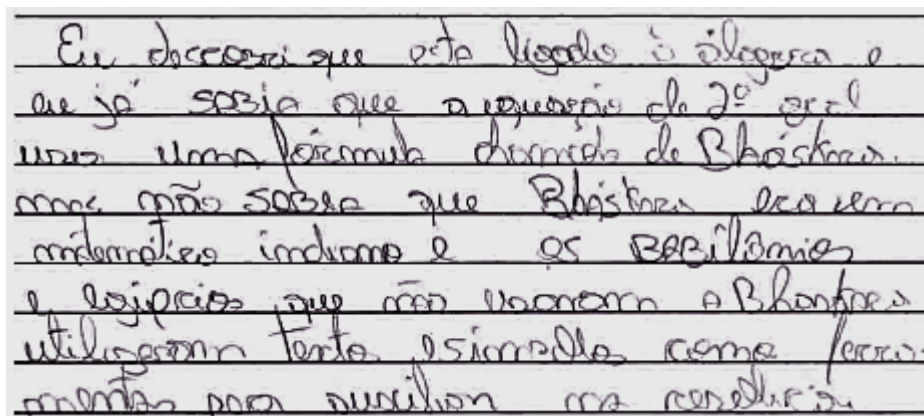 Eu descobri que esta ligado à álegebra e
eu já sabia que a equação do 2º gral
usa uma fórmula chamada de Bháskara.
mas não sabia que Bháskara era um
matemático indiano e os BaBilônios
e egípcios que não usaram a Bhaskara
utilizaram texto e simbolos como ferra-
mentas para auxiliar na resolução